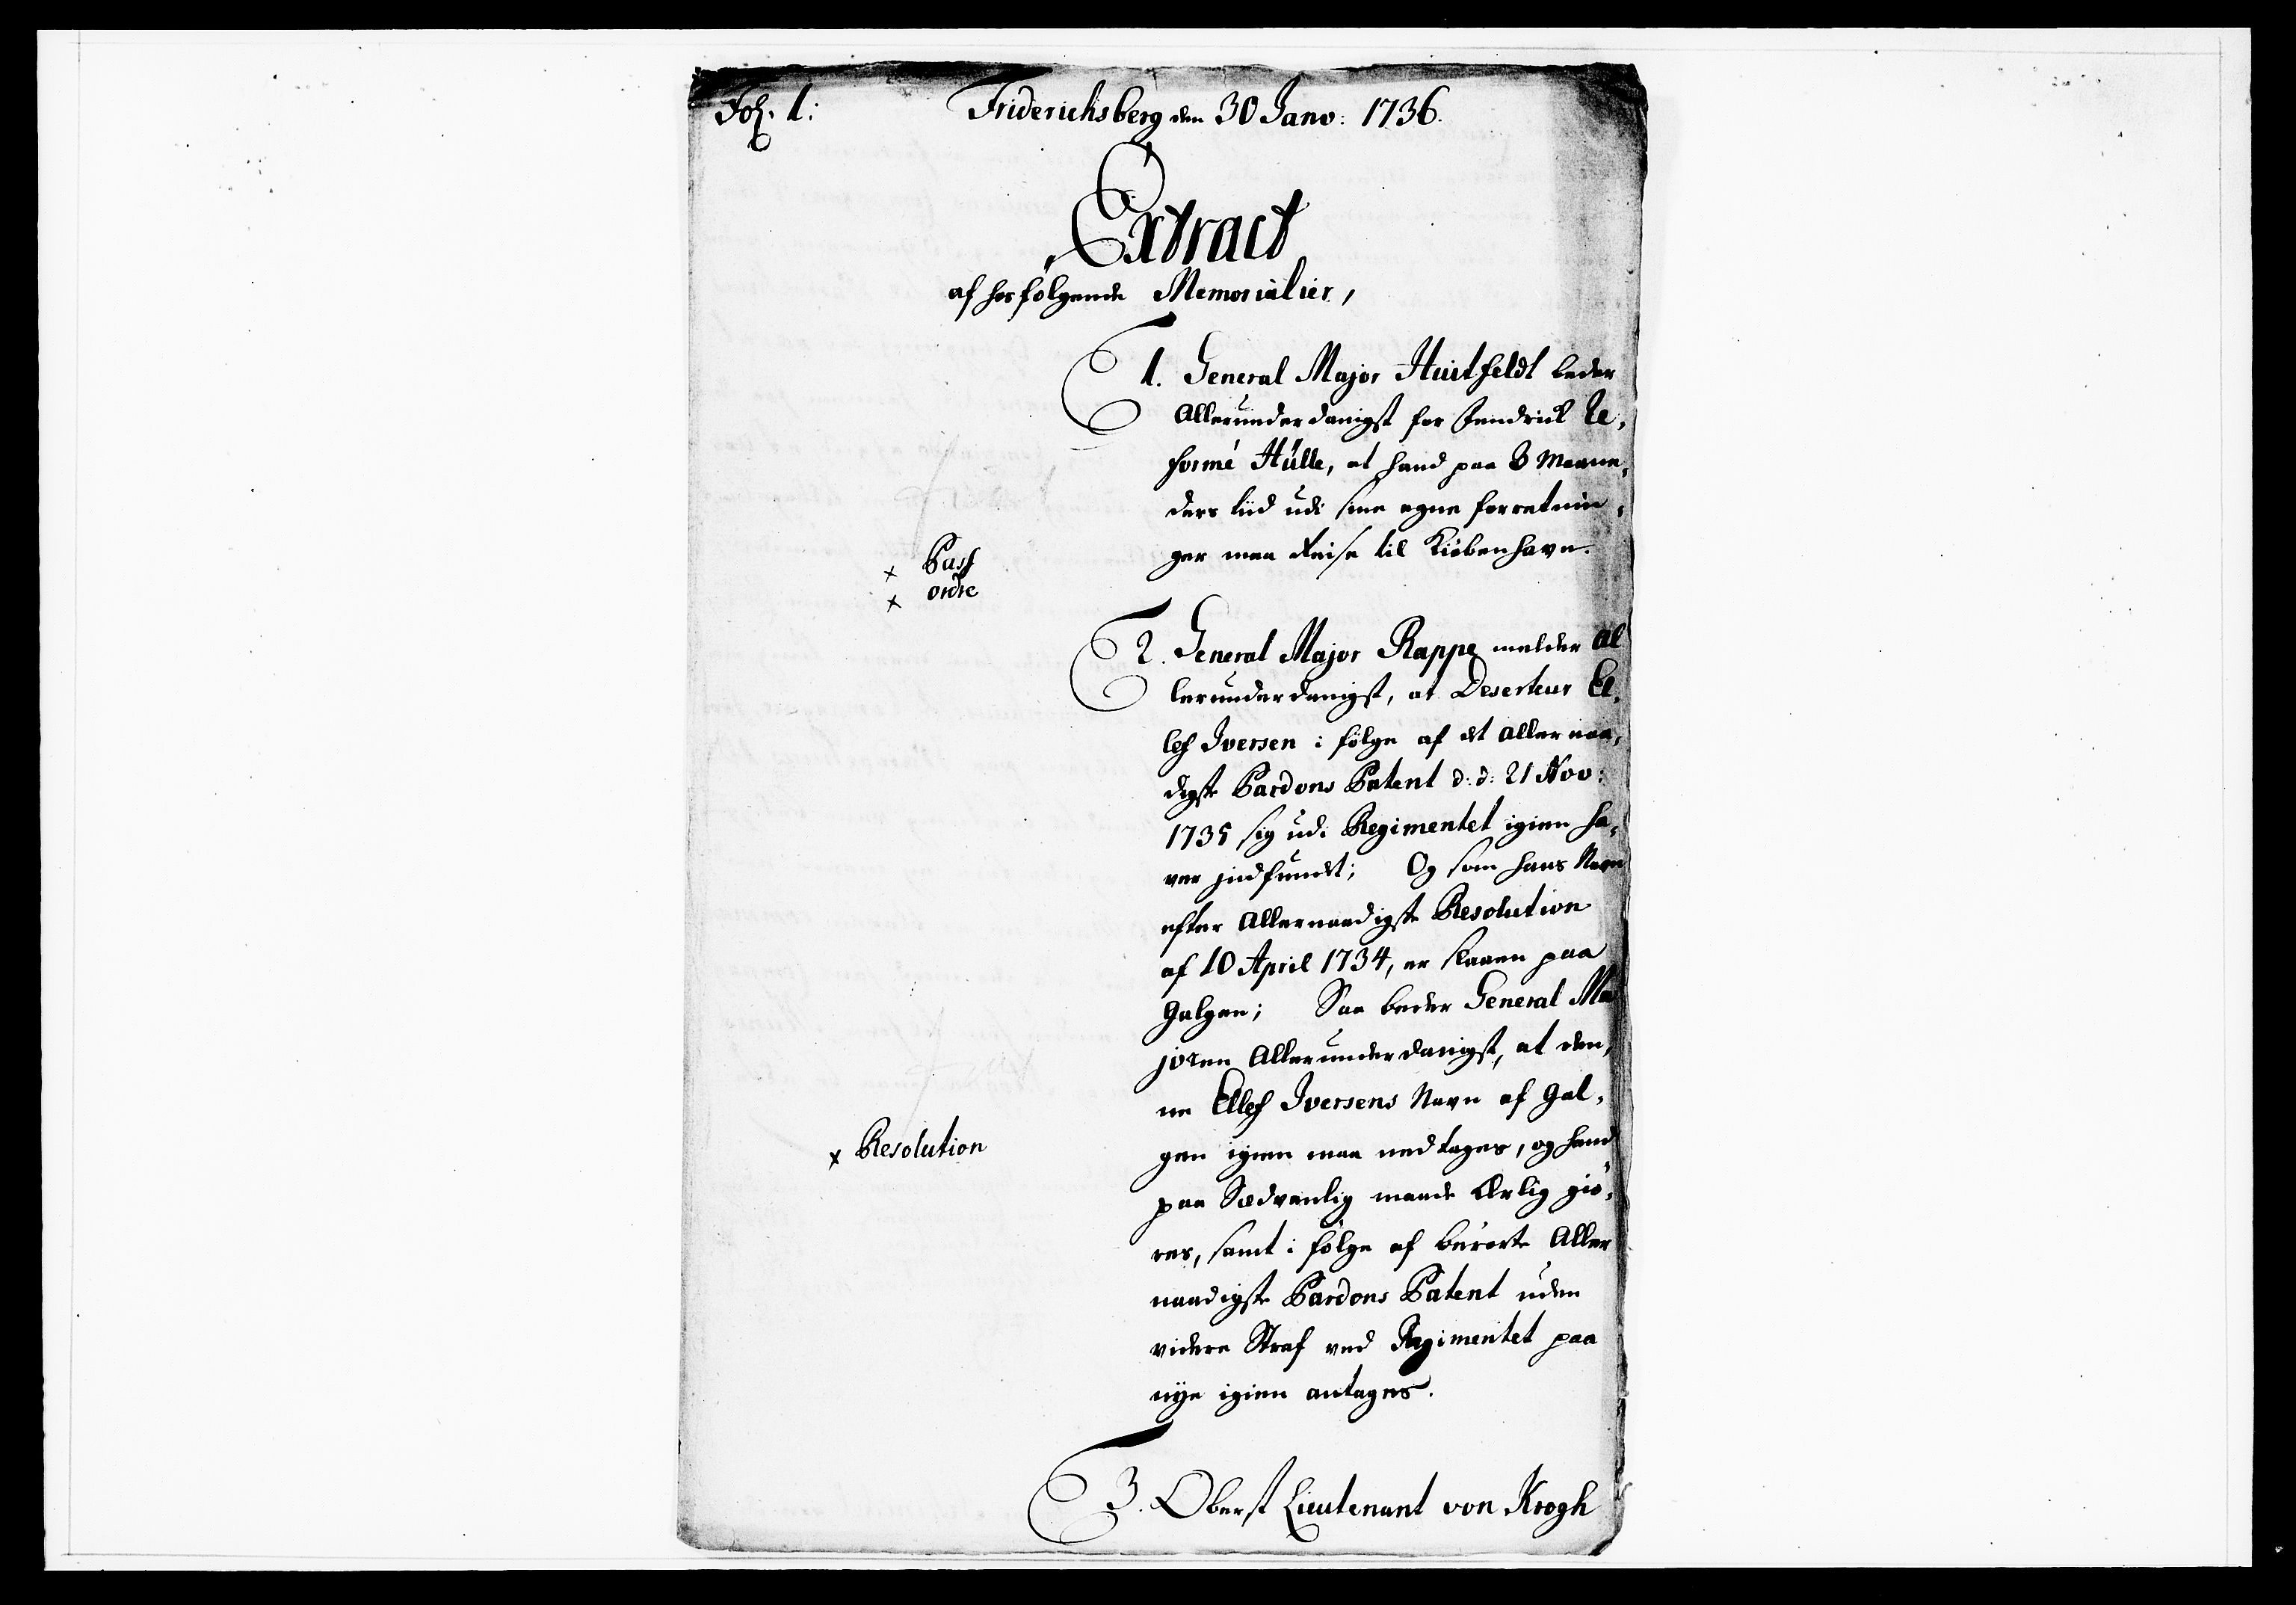 Fol. 1:
Friderichsberg den 30 Janv: 1736.
Extract
af hosfølgende Memorialier,
1. General Major Huitfeldt beder
Allerunderdanigst for Fendrick Re,
formé Hülle, at hand paa 3 Maane,
ders tiid udi sine egne forretnin,
ger maa Reise til Kiøbenhavn.
x Pass
x ordre
2. General Major Rappe melder Al
lerunderdanigst, at Deserteur El,
lef Iversen i følge af det allernaa,
digste Pardons Patent d: d: 21 Nov:
1735 sig udi Regimentet igien ha,
ver jndfundet; Og som hans Navn
efter Allernaadigste Resolution
af 10 April 1734, er slaaen paa
Galgen; Saa beder General Ma
joren Allerunderdanigst, at den,
ne Ellef Iversens Navn af Gal,
gen igien maa nedtages, og hand
x Resolution
paa Sædvanlig maade Ærlig giö,
res, samt i følge af berørte Aller
naadigste Pardons Patent uden
videre Straf ved Regimentet paa
nye igien antages.
3. Oberst Lieutenant von Krogh